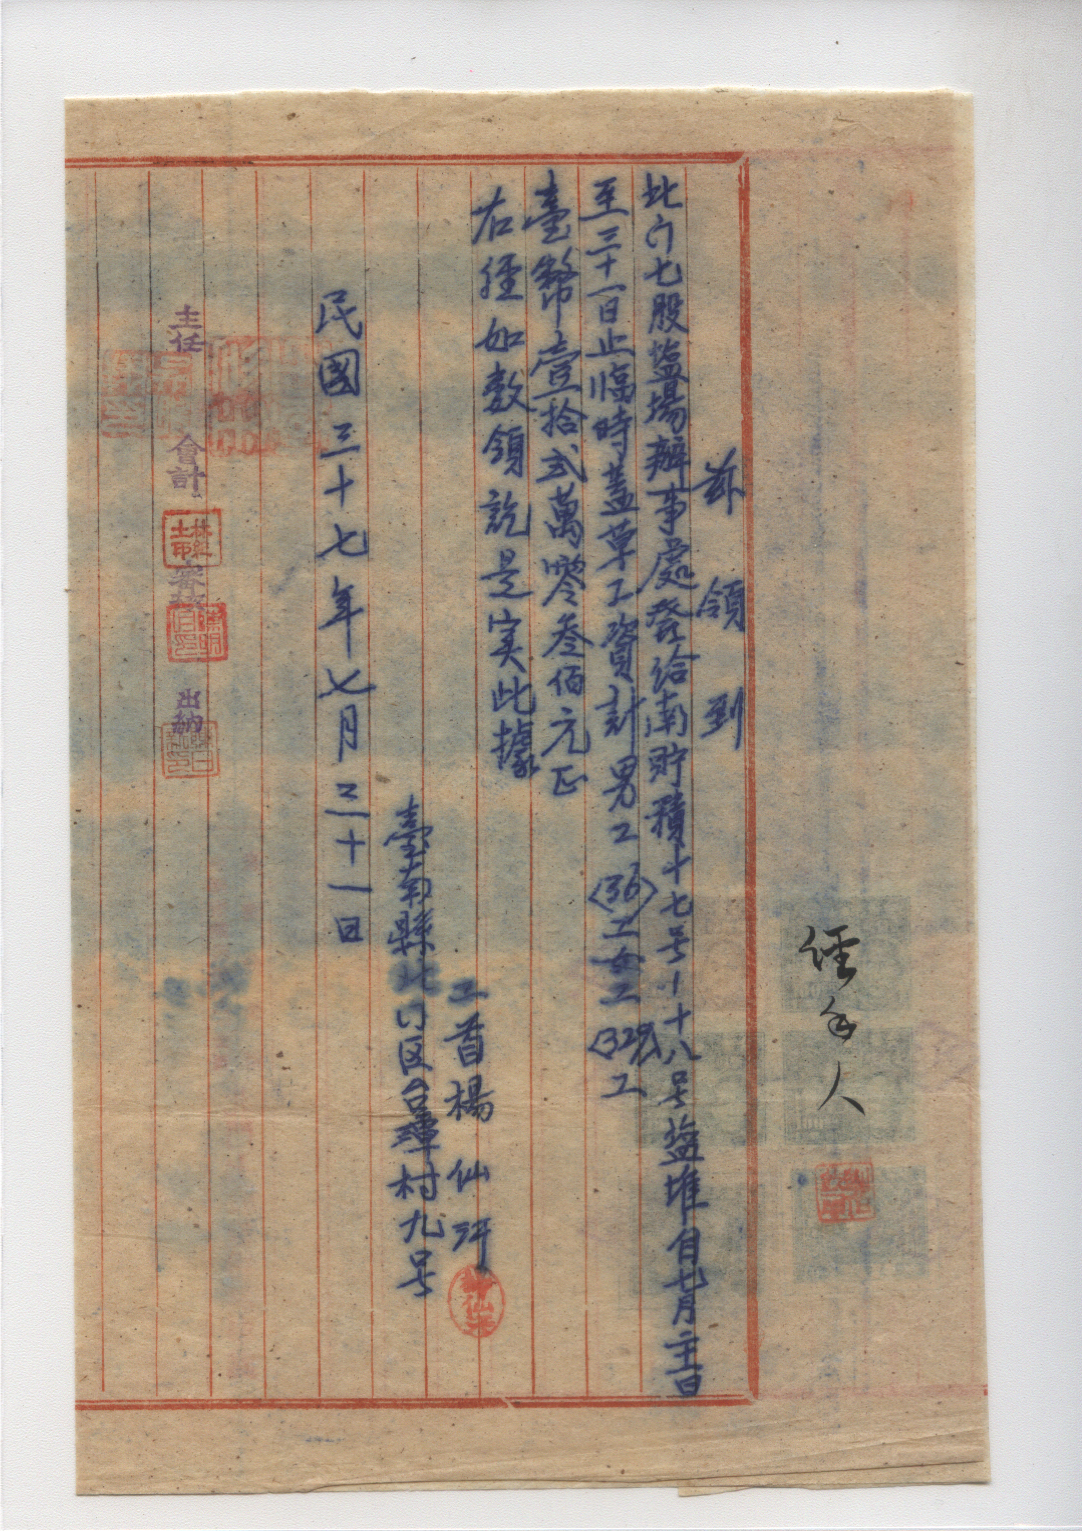 經手人
茲領到
北门七股塩場辦事處發給南貯積十七号十八号塩堆自七月
至三十一日止臨時蓋草工資計男工(36)工女工工
臺幣壹拾弍萬零叁佰元正
右經如数領訖是実此據
工首楊仙汗
臺南縣北门区台潭村九号
民國三十七年七月三十一日
主任 會計 審核 出納